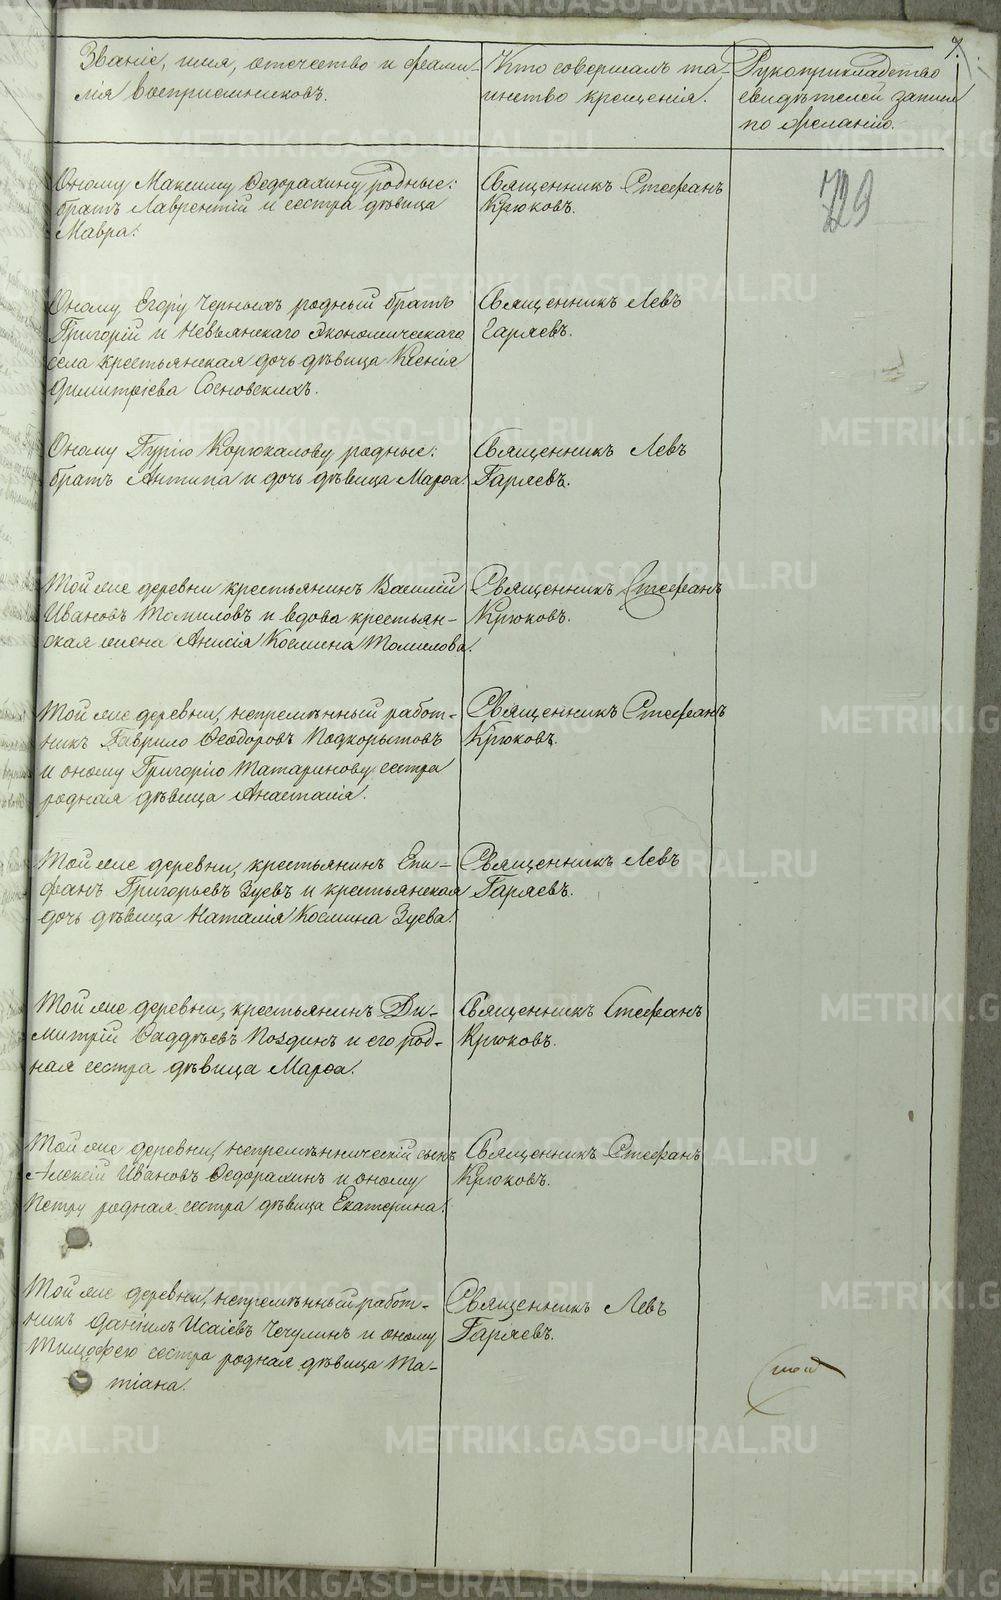 7.
Званіе, имя, отечество и фами-
лія воспріемниковъ.
Кто совершалъ та-
инство крещенія.
Рукоприкладство
свидѣтелей записи
по желанію.
729
Оному Максиму Ѳедорахину родные:
братъ Лаврентій и сестра дѣвица
Мавра.
Священникъ Стефанъ
Крюковъ.
Оному Егору Черныхъ родный братъ
Григорій и Невьянскаго Экономическаго
села крестьянская дочь дѣвица Ксенія
Димитріева Сосновскихъ.
Священникъ Левъ
Гаряевъ.
Оному Гурію Корюкалову родные:
братъ Антипа и дочь дѣвица Марѳа.
Священникъ Левъ
Гаряевъ.
Той же деревни крестьянинъ Василій
Ивановъ Томиловъ и вдова крестьян-
ская жена Анисія Космина Томилова.
Священникъ Стефанъ
Крюковъ.
Той же деревни, непремѣнный работ-
никъ Гаврило Ѳеодоровъ Подкорытовъ
и оному Григорію Татаринову сестра
родная дѣвица Анастасія.
Священникъ Стефанъ
Крюковъ.
Той же деревни, крестьянинъ Епи-
фанъ Григорьевъ Зуевъ и крестьянская
дочь дѣвица Наталія Космина Зуева.
Священникъ Левъ
Гаряевъ.
Той же деревни, крестьянинъ Ди-
митрій Ѳаддѣевъ Поздинъ и его род-
ная сестра дѣвица Марѳа.
Священникъ Стефанъ
Крюковъ.
Той же деревни, непремѣнническій сынъ
Алексій Ивановъ Ѳедорахинъ и оному
Петру родная сестра дѣвица Екатерина.
Священникъ Стефанъ
Крюковъ.
Той же деревни, непремѣнный работ-
никъ Даніилъ Исаіевъ Чечулинъ и оному
Тимофею сестра родная дѣвица Та-
тіана.
Священникъ Левъ
Гаряевъ.
METRIKI.GASO-URAL.RU